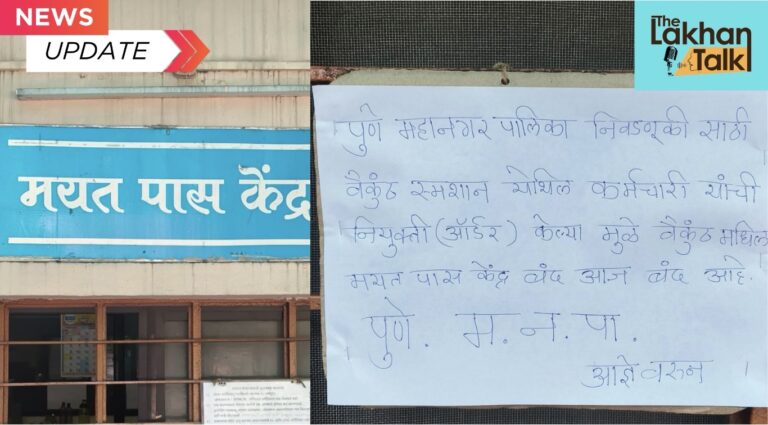 NEWS
UPDATE
The
Lakhan
Talk
मयत पास केंद्र
पुणे महानगर पालिका निवडणूकी साठी
वैकुंठ स्मशान येथिल कर्मचारी यांची
नियुक्ती (ऑर्डर) केल्या मुळे वैकुंठ मधिल
मयत पास केंद्र बंद आज बंद आहे.
पुणे. म.न.पा.
आज्ञेवरुन